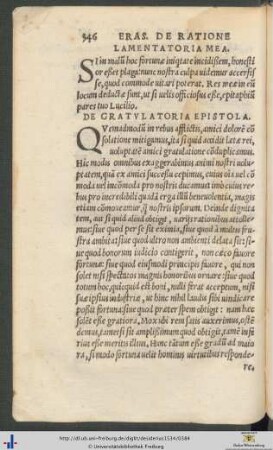 346 ERAS. DE RATIONE
LAMENTATORIA MEA.
SI in malū hoc fortunæ iniquitate incidissem, honesti
or esset plaga: nunc nostra culpa uidemur accersis
se, quod commode uitari poterat. Res mea in eū
locum deductæ sunt, ut si uelis officiosus esse, epitaphiū
pares tuo Lucilio.
DE GRATVLATORIA EPISTOLA.
QVemadmodū in rebus afflictis, amici dolorē cō
solatione mitigamus, ita si quid accidit lætæ rei,
uoluptatē amici gratulatione cōduplicamus.
Hic modis omnibus exaggerabimus animi nostri uolu-
ptatem, quā ex amici successu cepimus, cuius
uel incōmoda nostris ducamus
pro incredibili quadā erga illū beneuolentia, magis
etiam cōmoueamur, q̄ nostris ipsorum. Deinde dignita
tem, aut si quid aliud obtigit, uarijs rationibus attolle-
mus: siue quod per se sit eximia, siue quod à multis fru-
stra ambita: siue quod ultro non ambienti delata sit: si-
ue quod honorum iudicio contigerit, non cæco fauore
fortunæ: siue quod eiusmodi principis fauore, qui non
solet nisi spectatos magnis honoribus ornare: siue quod
totum hoc, quicquid est boni, nulli ferat acceptum, nisi
suæ ipsius industriæ, ut hinc nihil laudis sibi uindicare
possit fortuna: siue quod præter spem obtigit: nam hæc
solēt esse gratiora. Mox ibi rem satis auxerimus, ostē-
demus, tametsi sit amplissimum quod obtigit, tamē infe-
rius esse meritis illius. Hunc tātum esse gradū ad maio
ra, si modo fortuna uelit homini uirtutibus responde-
re,
http://dl.ub.uni-freiburg.de/diglit/desiderius1534/0384
© Universitätsbibliothek Freiburg
Baden-Württemberg